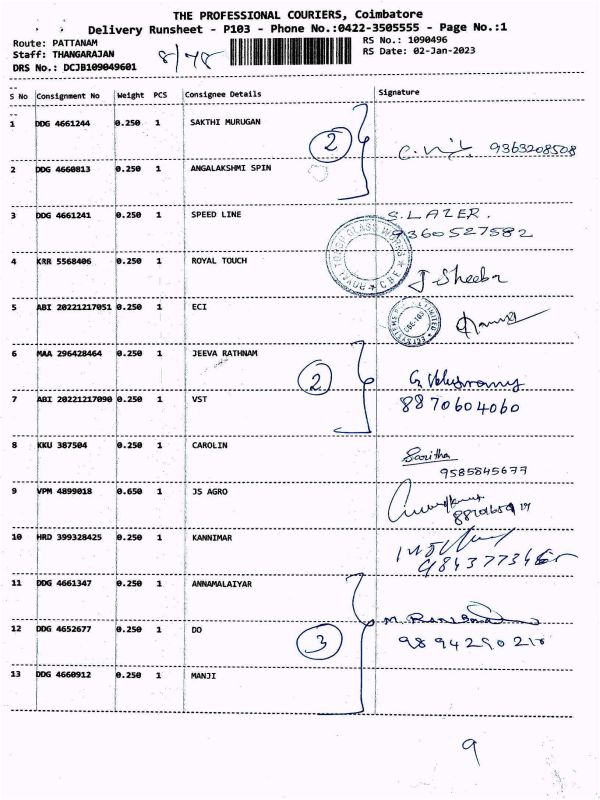 THE PROFESSIONAL COURIERS, Coimbatore
Delivery Runsheet - P103 - Phone No.:0422-3505555 - Page No.:1
Route: PATTANAM
RS No.: 1090496
Staff: THANGARAJAN
RS Date: 02-Jan-2023
DRS No.: DCJB109049601
S No Consignment No Weight PCS Consignee Details Signature
1 DDG 4661244 0.250 1 SAKTHI MURUGAN
2
9363208508
2 DDG 4660813 0.250 1 ANGALAKSHMI SPIN
3 DDG 4661241 0.250 1 SPEED LINE S.LAZER.
9360527582
4 KRR 5568406 0.250 1 ROYAL TOUCH J Sheeba
5 ABI 20221217051 0.250 1 ECI
6 MAA 296428464 0.250 1 JEEVA RATHNAM
2
8870604060
7 ABI 20221217090 0.250 1 VST
8 KKU 387504 0.250 1 CAROLIN Saritha
9585845677
9 VPM 4899018 0.650 1 JS AGRO
10 HRD 399328425 0.250 1 KANNIMAR
11 DDG 4661347 0.250 1 ANNAMALAIYAR
12 DDG 4652677 0.250 1 DO
3
9894290210
13 DDG 4660912 0.250 1 MANJI
9